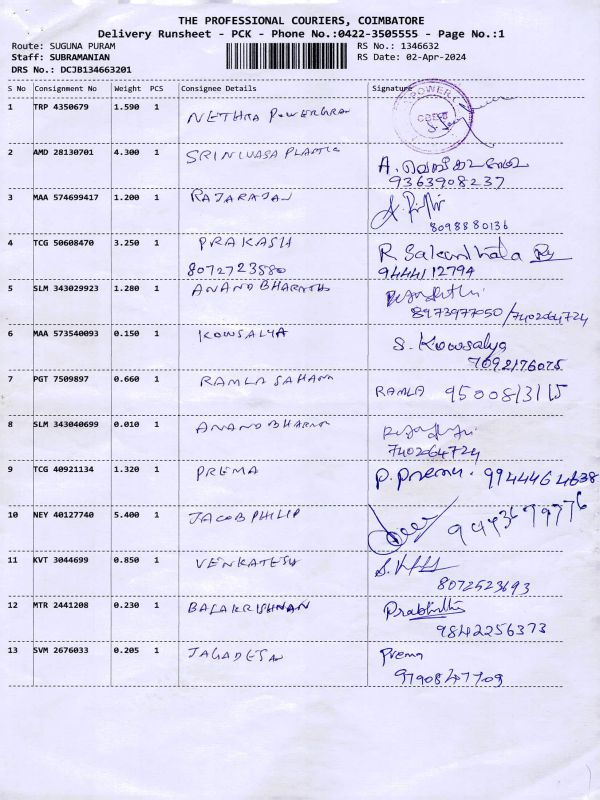 THE PROFESSIONAL COURIERS, COIMBATORE
Delivery Runsheet - PCK - Phone No.:0422-3505555 - Page No.:1
Route: SUGUNA PURAM
RS No.: 1346632
Staff: SUBRAMANIAN
RS Date: 02-Apr-2024
DRS No.: DCJB134663201
S No Consignment No Weight PCS Consignee Details Signature
1 TRP 4350679 1.590 1 NETHRA POWERGRAN POWER CBE-8
2 AMD 28130701 4.300 1 SRINIVASA PLASTIC A.
9363908237
3 MAA 574699417 1.200 1 RAJARAJAN
8098880136
4 TCG 50608470 3.250 1 PRAKASH R Sakunthala
8072723580 9444112794
5 SLM 343029923 1.280 1 ANAND BHARATH
8973977050/740264724
6 MAA 573540093 0.150 1 KOWSALYA S. Kowsalya
7692176075
7 PGT 7509897 0.660 1 RAMLA SAHANA RAMLA
8 SLM 343040699 0.010 1 ANAND BHARAT
740264724
9 TCG 40921134 1.320 1 PREMA P. Prema. 9944464638
10 NEY 40127740 5.400 1 JACOB PHILIP 9443679776
11 KVT 3044699 0.850 1 VENKATESH
8072523693
12 MTR 2441208 0.230 1 BALAKRISHNAN Prabhathi
9842256373
13 SVM 2676033 0.205 1 JAGADESAN Prema
9790847709